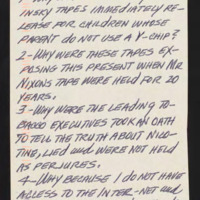 INSKY TAPES IMMEDIATELY RE-
LEASE FOR CHILDREN WHOSE
PARENT DO NOT USE A V-CHIP?
2-WHY WERE THESE TAPES EX-
POSING THIS PRESENT WHEN MR
NIXONS TAPE WERE HELD FOR 20
YEARS.
3-WHY WERE THE LEADING TO-
BACCO EXECUTIVES TOOK AN OATH
TO TELL THE TRUTH ABOUT NICO-
TINE, LIED AND WERE NOT HELD
AS PERJURES.
4-WHY BECAUSE I DO NOT HAVE
ACCESS TO THE INTER-NET AND